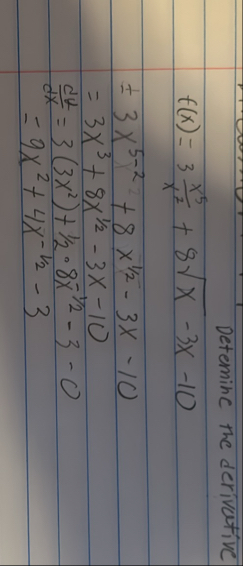 Determine the derivative
f(x) = 3 x⁵/x² + 8√x - 3x - 10
= 3x⁵⁻² + 8x^1/2 - 3x - 10
= 3x³ + 8x^1/2 - 3x - 10
dy/dx = 3(3x²) + 1/2 · 8x^-1/2 - 3 - 0
= 9x² + 4x^-1/2 - 3